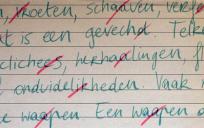 , kroeten, schaaven, verf
t is een gevecht. Telke
clichees, herhaalingen, f
onduidelijkheden. Vaak
e waapen. Een waapen